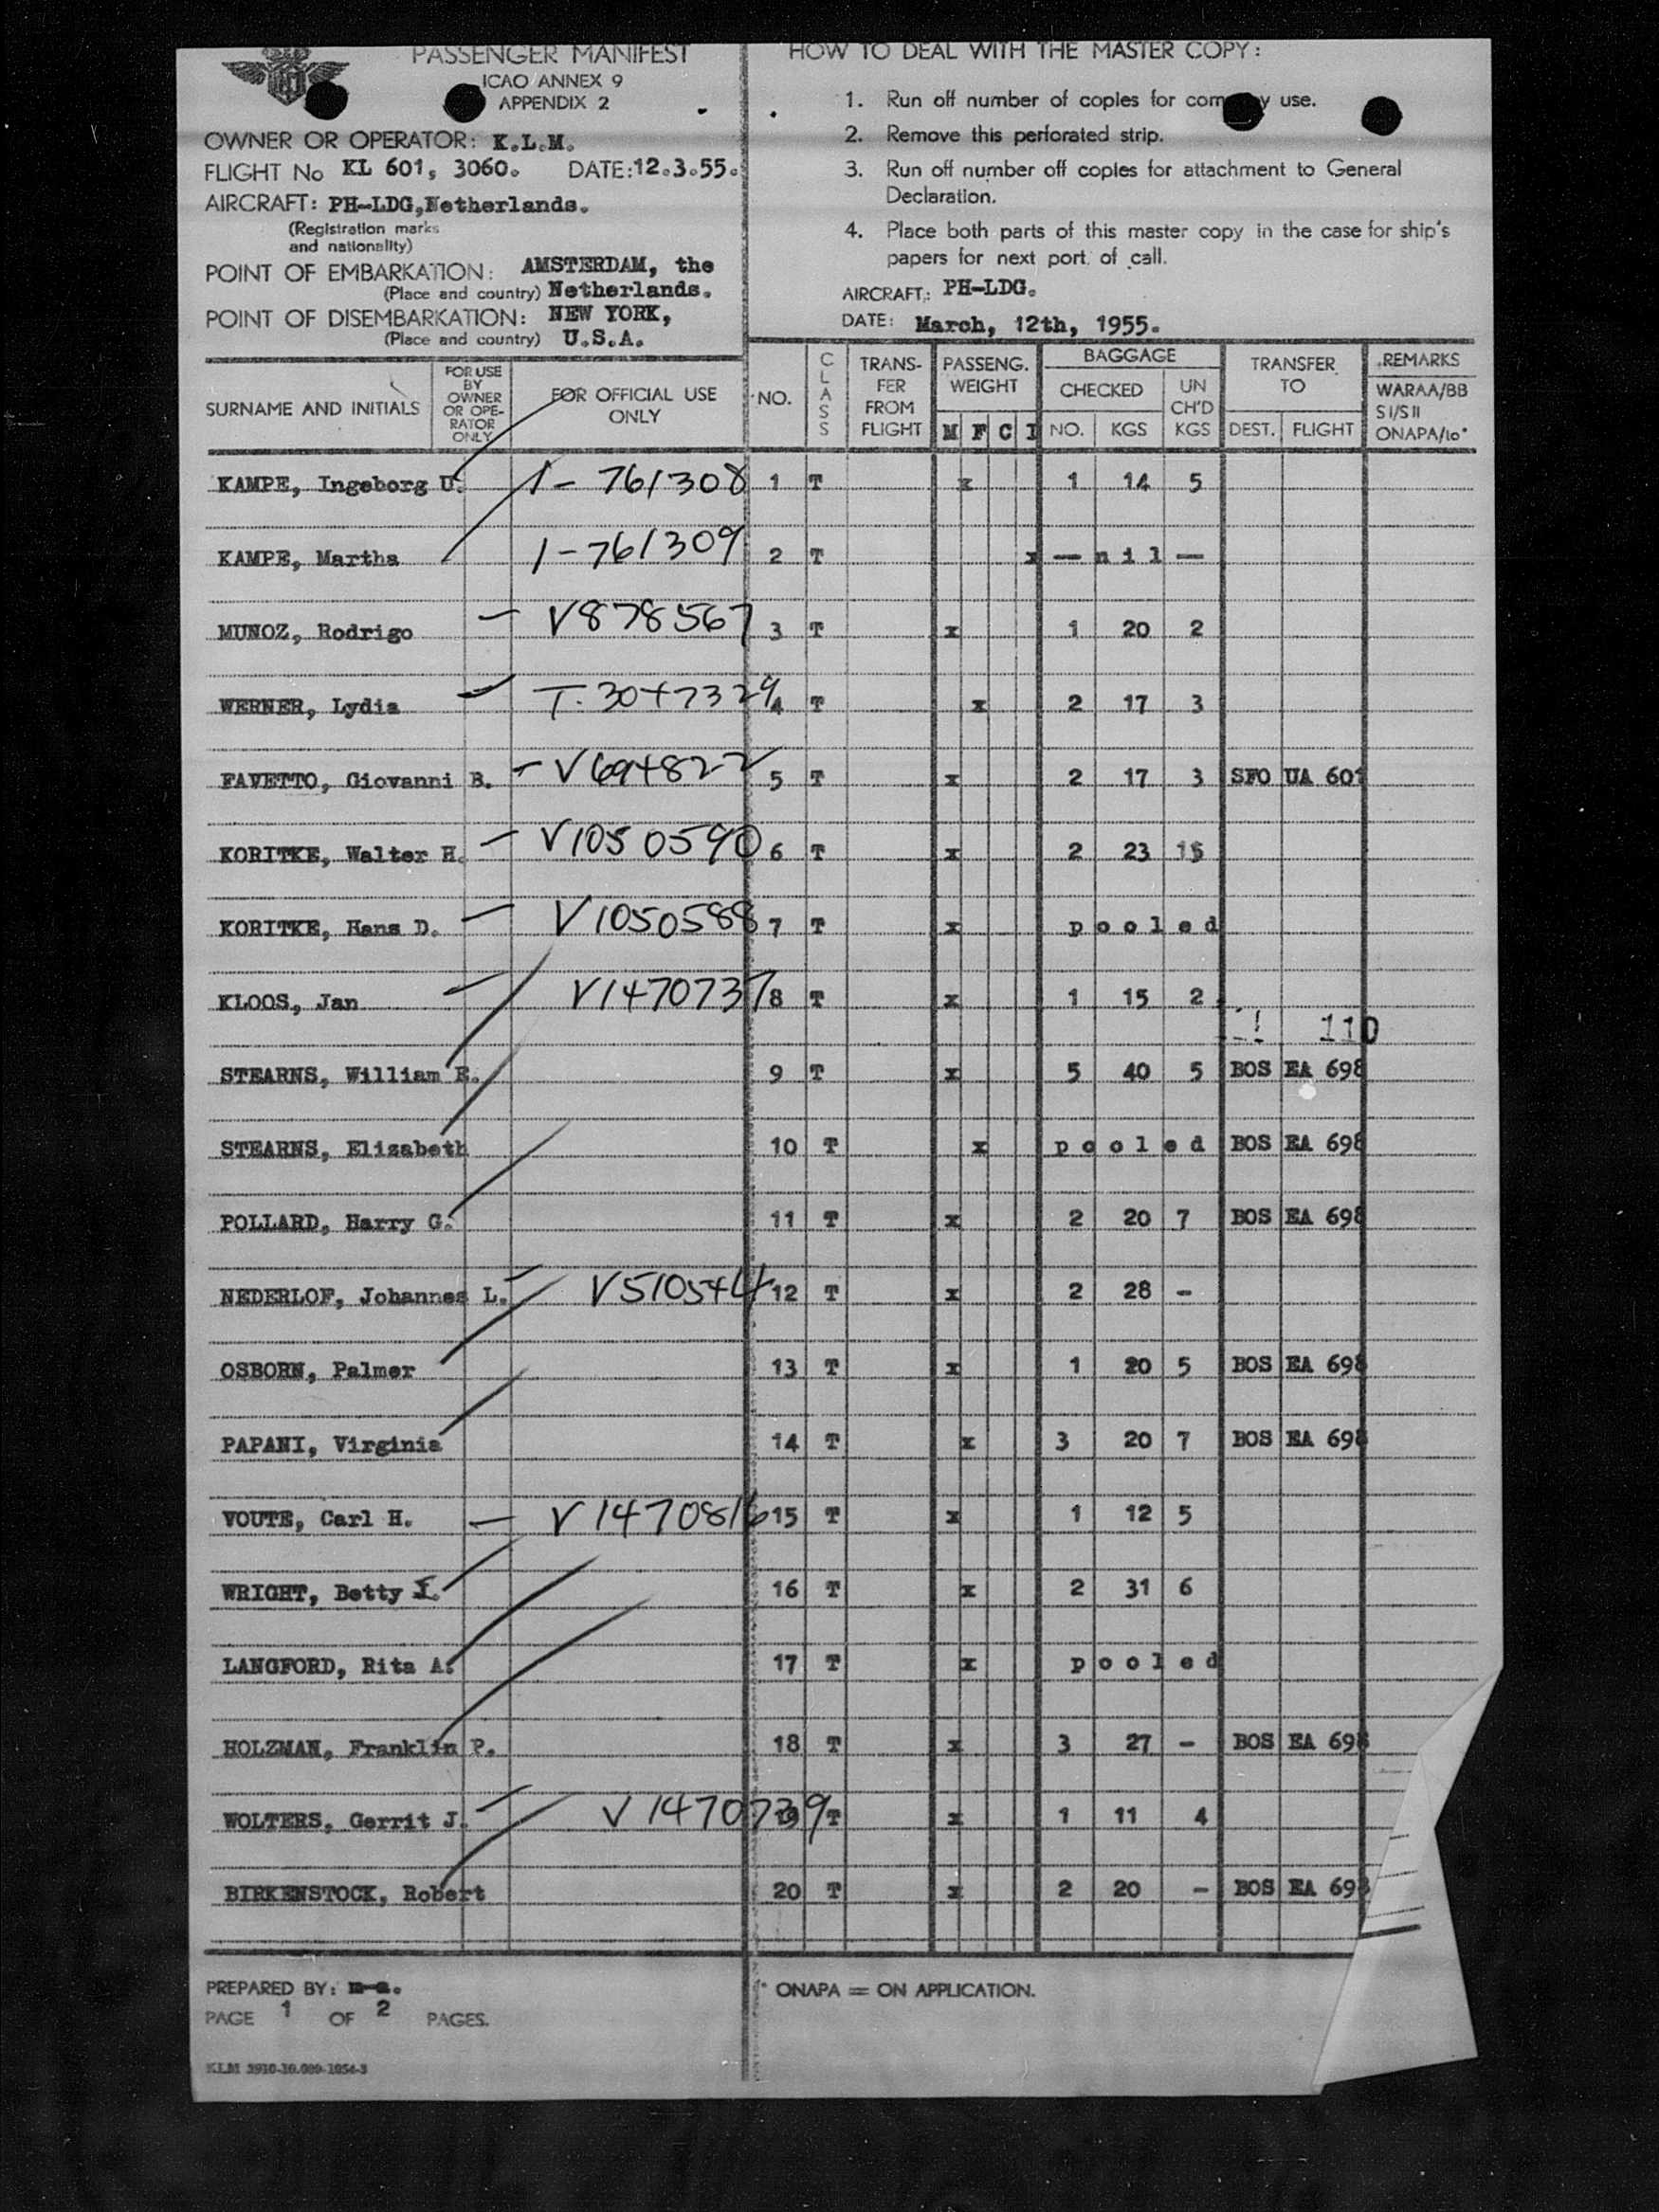 PASSENGER MANIFEST
ICAO ANNEX 9
APPENDIX 2
OWNER OR OPERATOR: K.L.M.
FLIGHT No KL 601, 3060. DATE: 12.3.55.
AIRCRAFT: PH-LDG, Netherlands.
(Registration marks
and nationality)
POINT OF EMBARKATION: AMSTERDAM, the
(Place and country) Netherlands.
POINT OF DISEMBARKATION: NEW YORK,
(Place and country) U.S.A.
HOW TO DEAL WITH THE MASTER COPY:
1. Run off number of copies for company use.
2. Remove this perforated strip.
3. Run off number off copies for attachment to General
Declaration.
4. Place both parts of this master copy in the case for ship's
papers for next port of call.
AIRCRAFT: PH-LDG.
DATE: March, 12th, 1955.
SURNAME AND INITIALS FOR USE BY OWNER OR OPE-RATOR ONLY FOR OFFICIAL USE ONLY NO. CLASS TRANS-FER FROM FLIGHT PASSENG. WEIGHT M F C I BAGGAGE CHECKED NO. KGS UN CH'D KGS TRANSFER TO DEST. FLIGHT REMARKS WARAA/BB SI/SII ONAPA/10*
KAMPE, Ingeborg U. 1-761308 1 T x 1 14 5
KAMPE, Martha 1-761309 2 T x — n i l —
MUNOZ, Rodrigo V878567 3 T x 1 20 2
WERNER, Lydia T-3047329 4 T x 2 17 3
FAVETTO, Giovanni B. V694822 5 T x 2 17 3 SFO UA 601
KORITKE, Walter H. V1050590 6 T x 2 23 15
KORITKE, Hans D. V1050588 7 T x p o o l e d
KLOOS, Jan V1470737 8 T x 1 15 2
110
STEARNS, William E. 9 T x 5 40 5 BOS EA 698
STEARNS, Elizabeth 10 T x p o o l e d BOS EA 698
POLLARD, Harry G. 11 T x 2 20 7 BOS EA 698
NEDERLOF, Johannes L. V510544 12 T x 2 28 -
OSBORN, Palmer 13 T x 1 20 5 BOS EA 698
PAPANI, Virginia 14 T x 3 20 7 BOS EA 698
VOUTE, Carl H. V1470816 15 T x 1 12 5
WRIGHT, Betty I. 16 T x 2 31 6
LANGFORD, Rita A. 17 T x p o o l e d
HOLZMAN, Franklin P. 18 T x 3 27 - BOS EA 698
WOLTERS, Gerrit J. V1470739 19 T x 1 11 4
BIRKENSTOCK, Robert 20 T x 2 20 - BOS EA 698
PREPARED BY:
PAGE 1 OF 2 PAGES.
* ONAPA = ON APPLICATION.